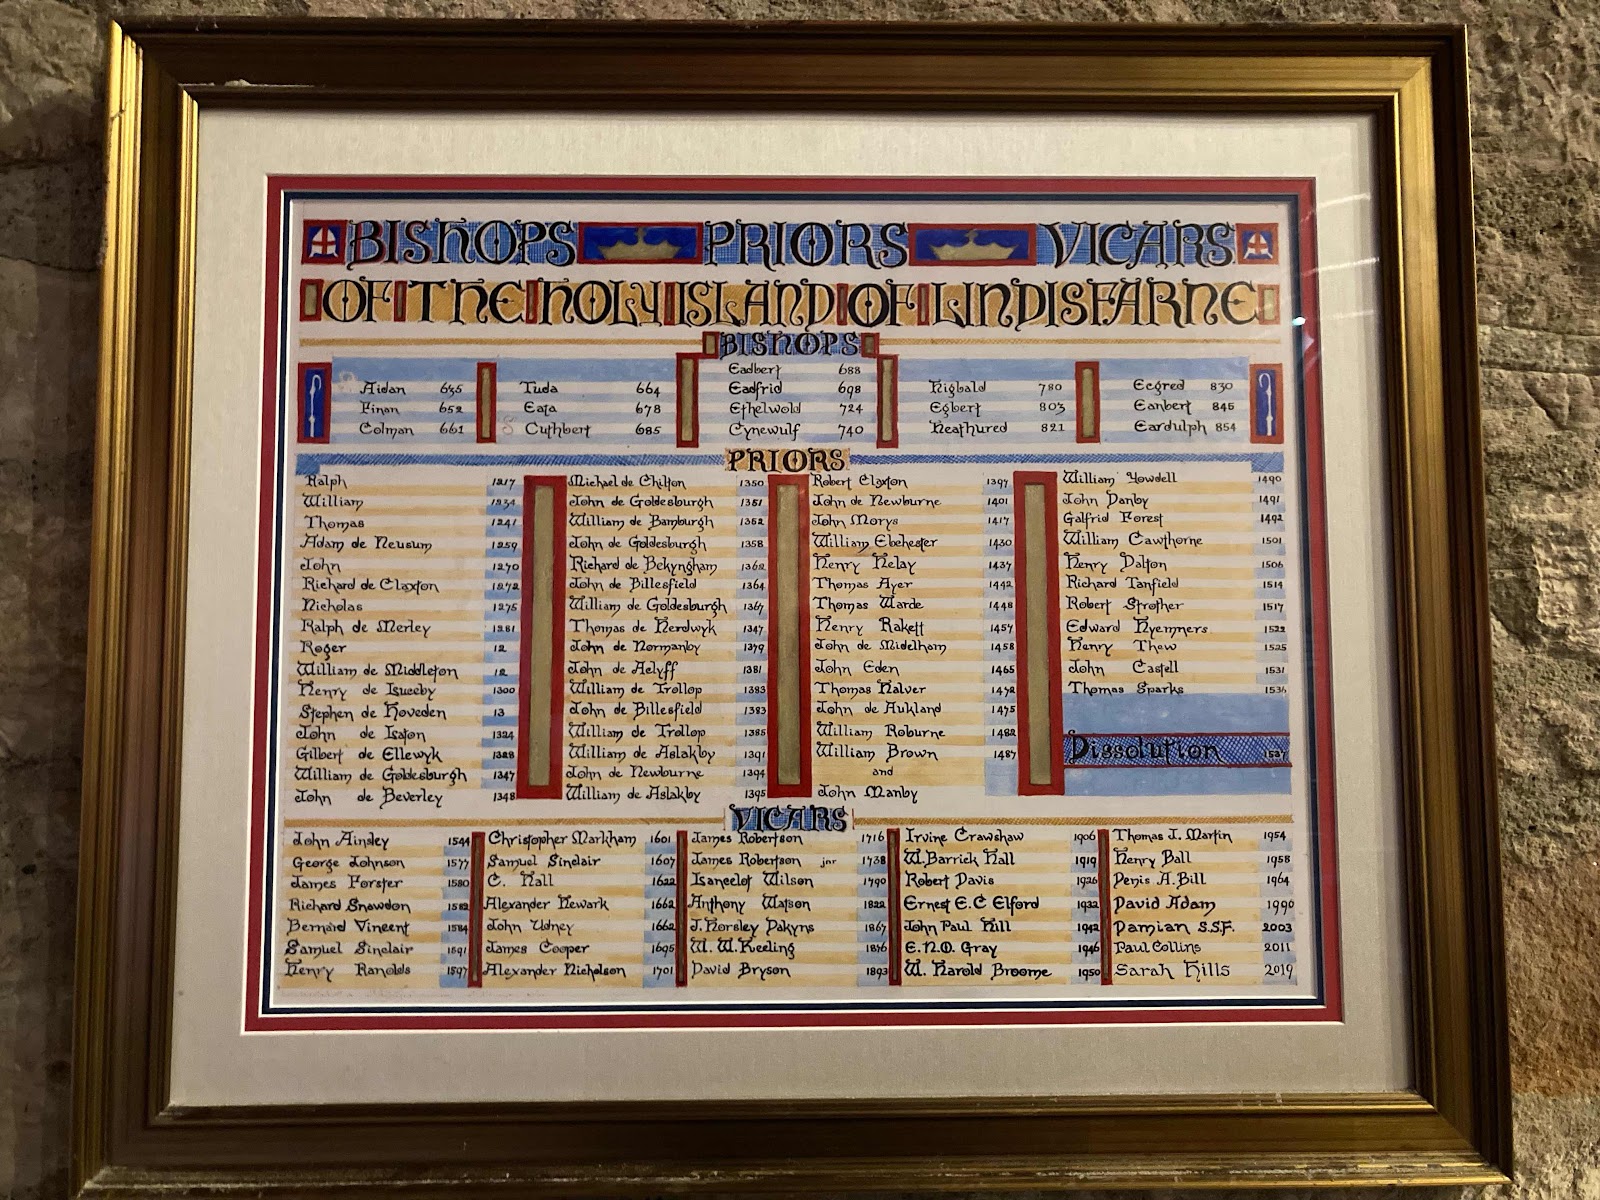 BISHOPS PRIORS VICARS
OF THE HOLY ISLAND OF LINDISFARNE
BISHOPS
Aidan 635
Finan 652
Colman 661
Tuda 664
Eata 678
Cuthbert 685
Eadbert 688
Eadfrid 698
Ethelwold 724
Cynewulf 740
Higbald 780
Egbert 803
Heathured 821
Ecgred 830
Eanbert 845
Eardulph 854
PRIORS
Ralph 1217
William 1234
Thomas 1241
Adam de Neusum 1259
John 1270
Richard de Claxton 1272
Nicholas 1275
Ralph de Merley 1281
Roger 12
William de Middleton 12
Henry de 1300
Stephen de Hoveden 13
John de 1324
Gilbert de Ellewyk 1328
William de Goldesburgh 1347
John de Beverley 1348
Michael de Chilton 1350
John de Goldesburgh 1351
William de Bamburgh 1352
John de Goldesburgh 1358
Richard de Bekyngham 1362
John de Billesfield 1364
William de Goldesburgh 1367
Thomas de Herdwyk 1347
John de Normanby 1379
John de Aclyff 1381
William de Trollop 1383
John de Billesfield 1383
William de Trollop 1385
William de Aslakby 1391
John de Newburne 1394
William de Aslakby 1395
Robert Claxton 1397
John de Newburne 1401
John Morys 1417
William Ebchester 1430
Henry Helay 1437
Thomas Ayer 1442
Thomas Warde 1448
Henry Rakett 1457
John de Midelham 1458
John Eden 1465
Thomas Halver 1472
John de Aukland 1475
William Roburne 1482
William Brown 1487
and
John Manby
William Yowdell 1490
John Danby 1491
Galfrid Forest 1492
William Cawthorne 1501
Henry Dalton 1506
Richard Tanfield 1514
Robert Strother 1517
Edward Hyemners 1522
Henry Thew 1525
John Castell 1531
Thomas Sparks 1536
Dissolution 1537
VICARS
John Ainsley 1544
George Johnson 1577
James Forster 1580
Richard Snawdon 1582
Bernard Vincent 1584
Samuel Sinclair 1591
Henry Ranolds 1597
Christopher Markham 1601
Samuel Sinclair 1607
C. Hall 1622
Alexander Newark 1662
John Udney 1662
James Cooper 1695
Alexander Nicholson 1701
James Robertson 1716
James Robertson jnr 1738
Isancelot Wilson 1790
Anthony Watson 1822
J. Horsley Dakyns 1867
W. W. Keeling 1876
David Bryson 1893
Irvine Crawshaw 1906
W. Barrick Hall 1919
Robert Davis 1926
Ernest E.C Elford 1932
John Paul Hill 1942
E.N.O. Gray 1946
W. Harold Broome 1950
Thomas J. Martin 1954
Henry Ball 1958
Denis A. Bill 1964
David Adam 1990
Damian S.S.F. 2003
Paul Collins 2011
Sarah Hills 2019